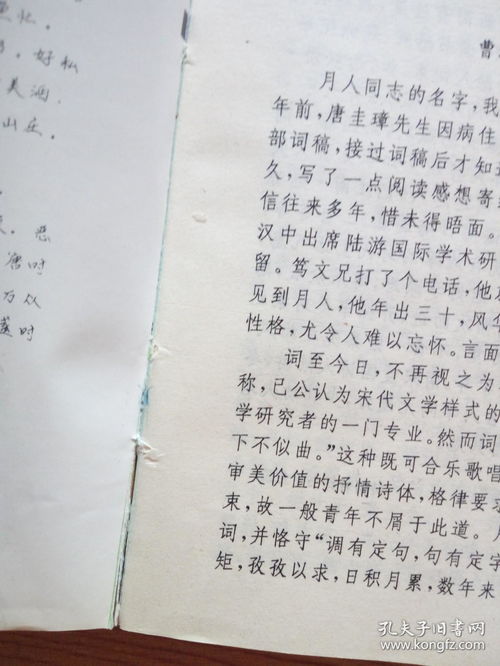 好私
美酒
山丘
唐时
为众
曹
月人同志的名字，我
年前，唐圭璋先生因病住
部词稿，接过词稿后才知
久，写了一点阅读感想寄
信往来多年，惜未得晤面。
汉中出席陆游国际学术研
留。笃文兄打了个电话，他
见到月人，他年出三十，风
性格，尤令人难以忘怀。言面
词至今日，不再视之为
称，已公认为宋代文学样式的
学研究者的一门专业。然而词
下不似曲。”这种既可合乐歌唱
审美价值的抒情诗体，格律要
束，故一般青年不屑于此道。
词，并恪守“调有定句，句有定字
矩，孜孜以求，日积月累，数年来
孔夫子旧书网